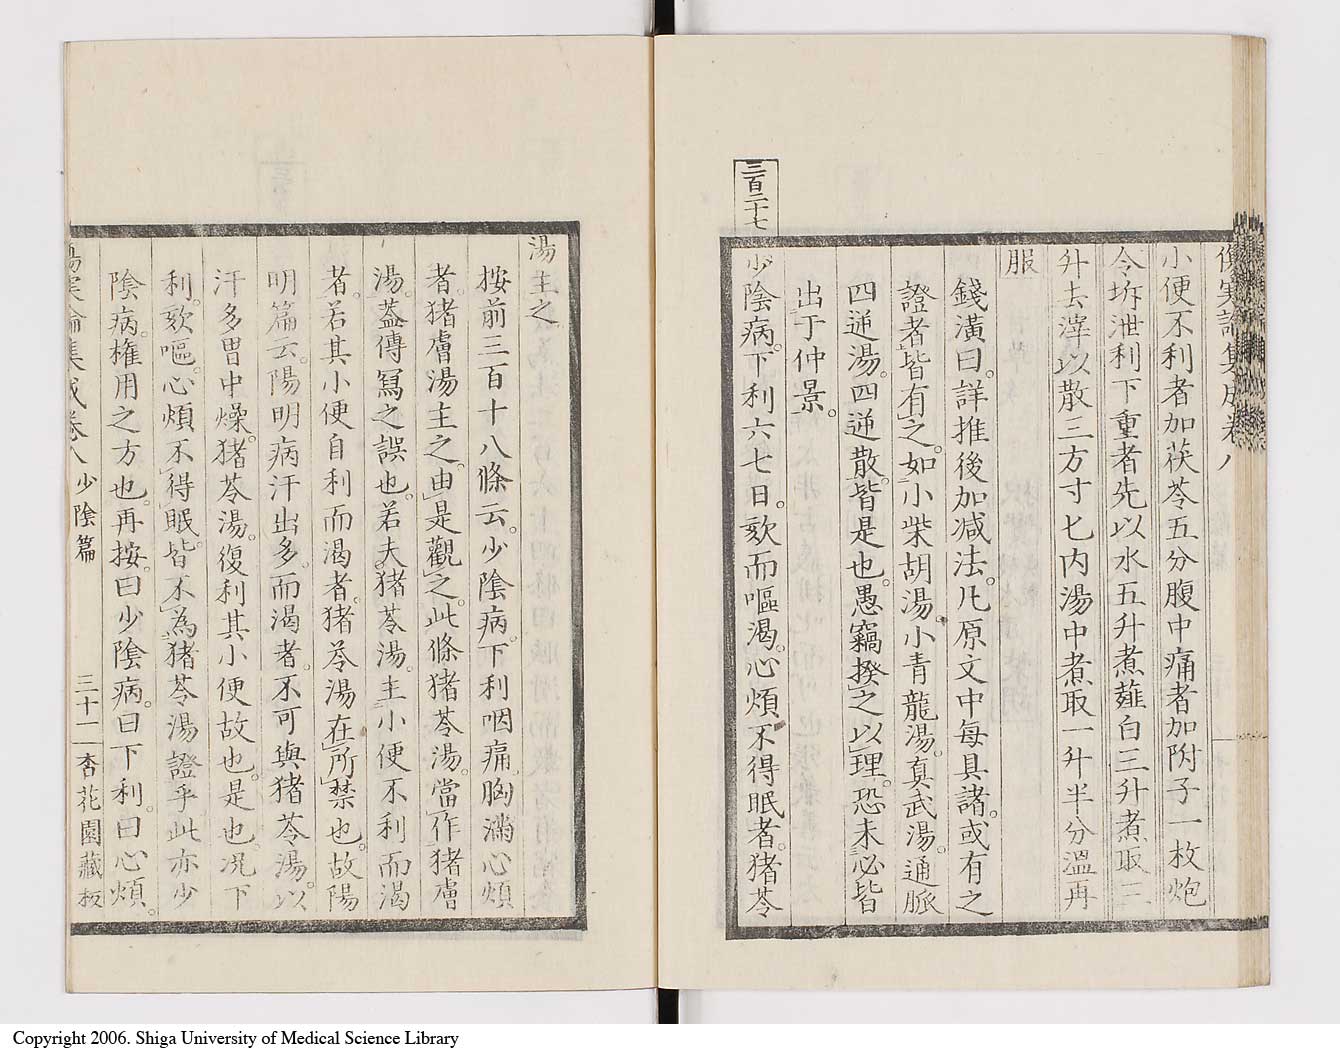 傷寒論集成卷八
小便不利者加茯苓五分腹中痛者加附子一枚炮
令坼泄利下重者先以水五升煮薤白三升煮取三
升去滓以散三方寸匕內湯中煮取一升半分溫再
服
錢潢曰。詳推後加减法。凡原文中每具諸。或有之
證者皆有之。如小柴胡湯。小青龍湯。真武湯。通脈
四逆湯。四逆散。皆是也。愚竊揆之以理。恐未必皆
出于仲景。
三百二十七
少陰病。下利六七日。欬而嘔渴。心煩不得眠者。猪苓
湯主之
按前三百十八條云。少陰病。下利咽痛。胸滿心煩
者。猪膚湯主之。由是觀之。此條猪苓湯。當作猪膚
湯。蓋傳冩之誤也。若夫猪苓湯。主小便不利而渴
者。若其小便自利而渴者。猪苓湯在所禁也。故陽
明篇云。陽明病汗出多。而渴者。不可與猪苓湯。以
汗多胃中燥。猪苓湯。復利其小便故也。是也。况下
利。欬嘔。心煩不得眠。皆不為猪苓湯證乎此亦少
陰病。權用之方也。再按。曰少陰病。曰下利。曰心煩。
傷寒論集成卷八 少陰篇 三十一 杏花園藏板
Copyright 2006. Shiga University of Medical Science Library